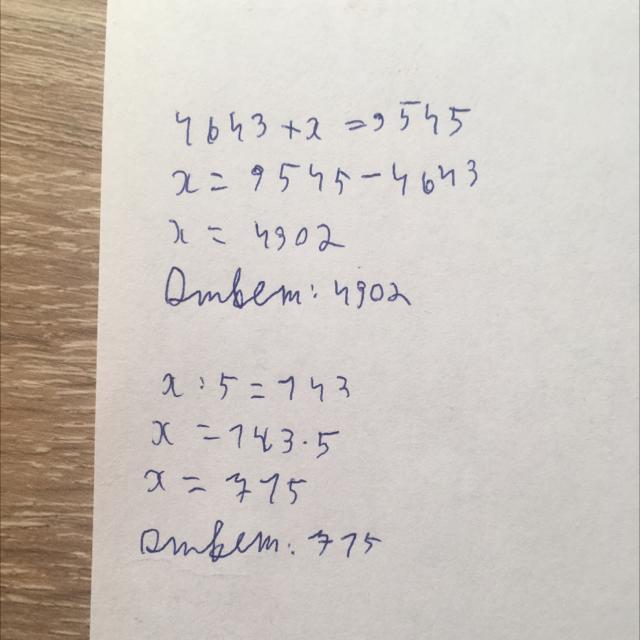 4643 + x = 9545
x = 9545 - 4643
x = 4902
Ответ: 4902
x : 5 = 143
x = 143 · 5
x = 715
Ответ: 715